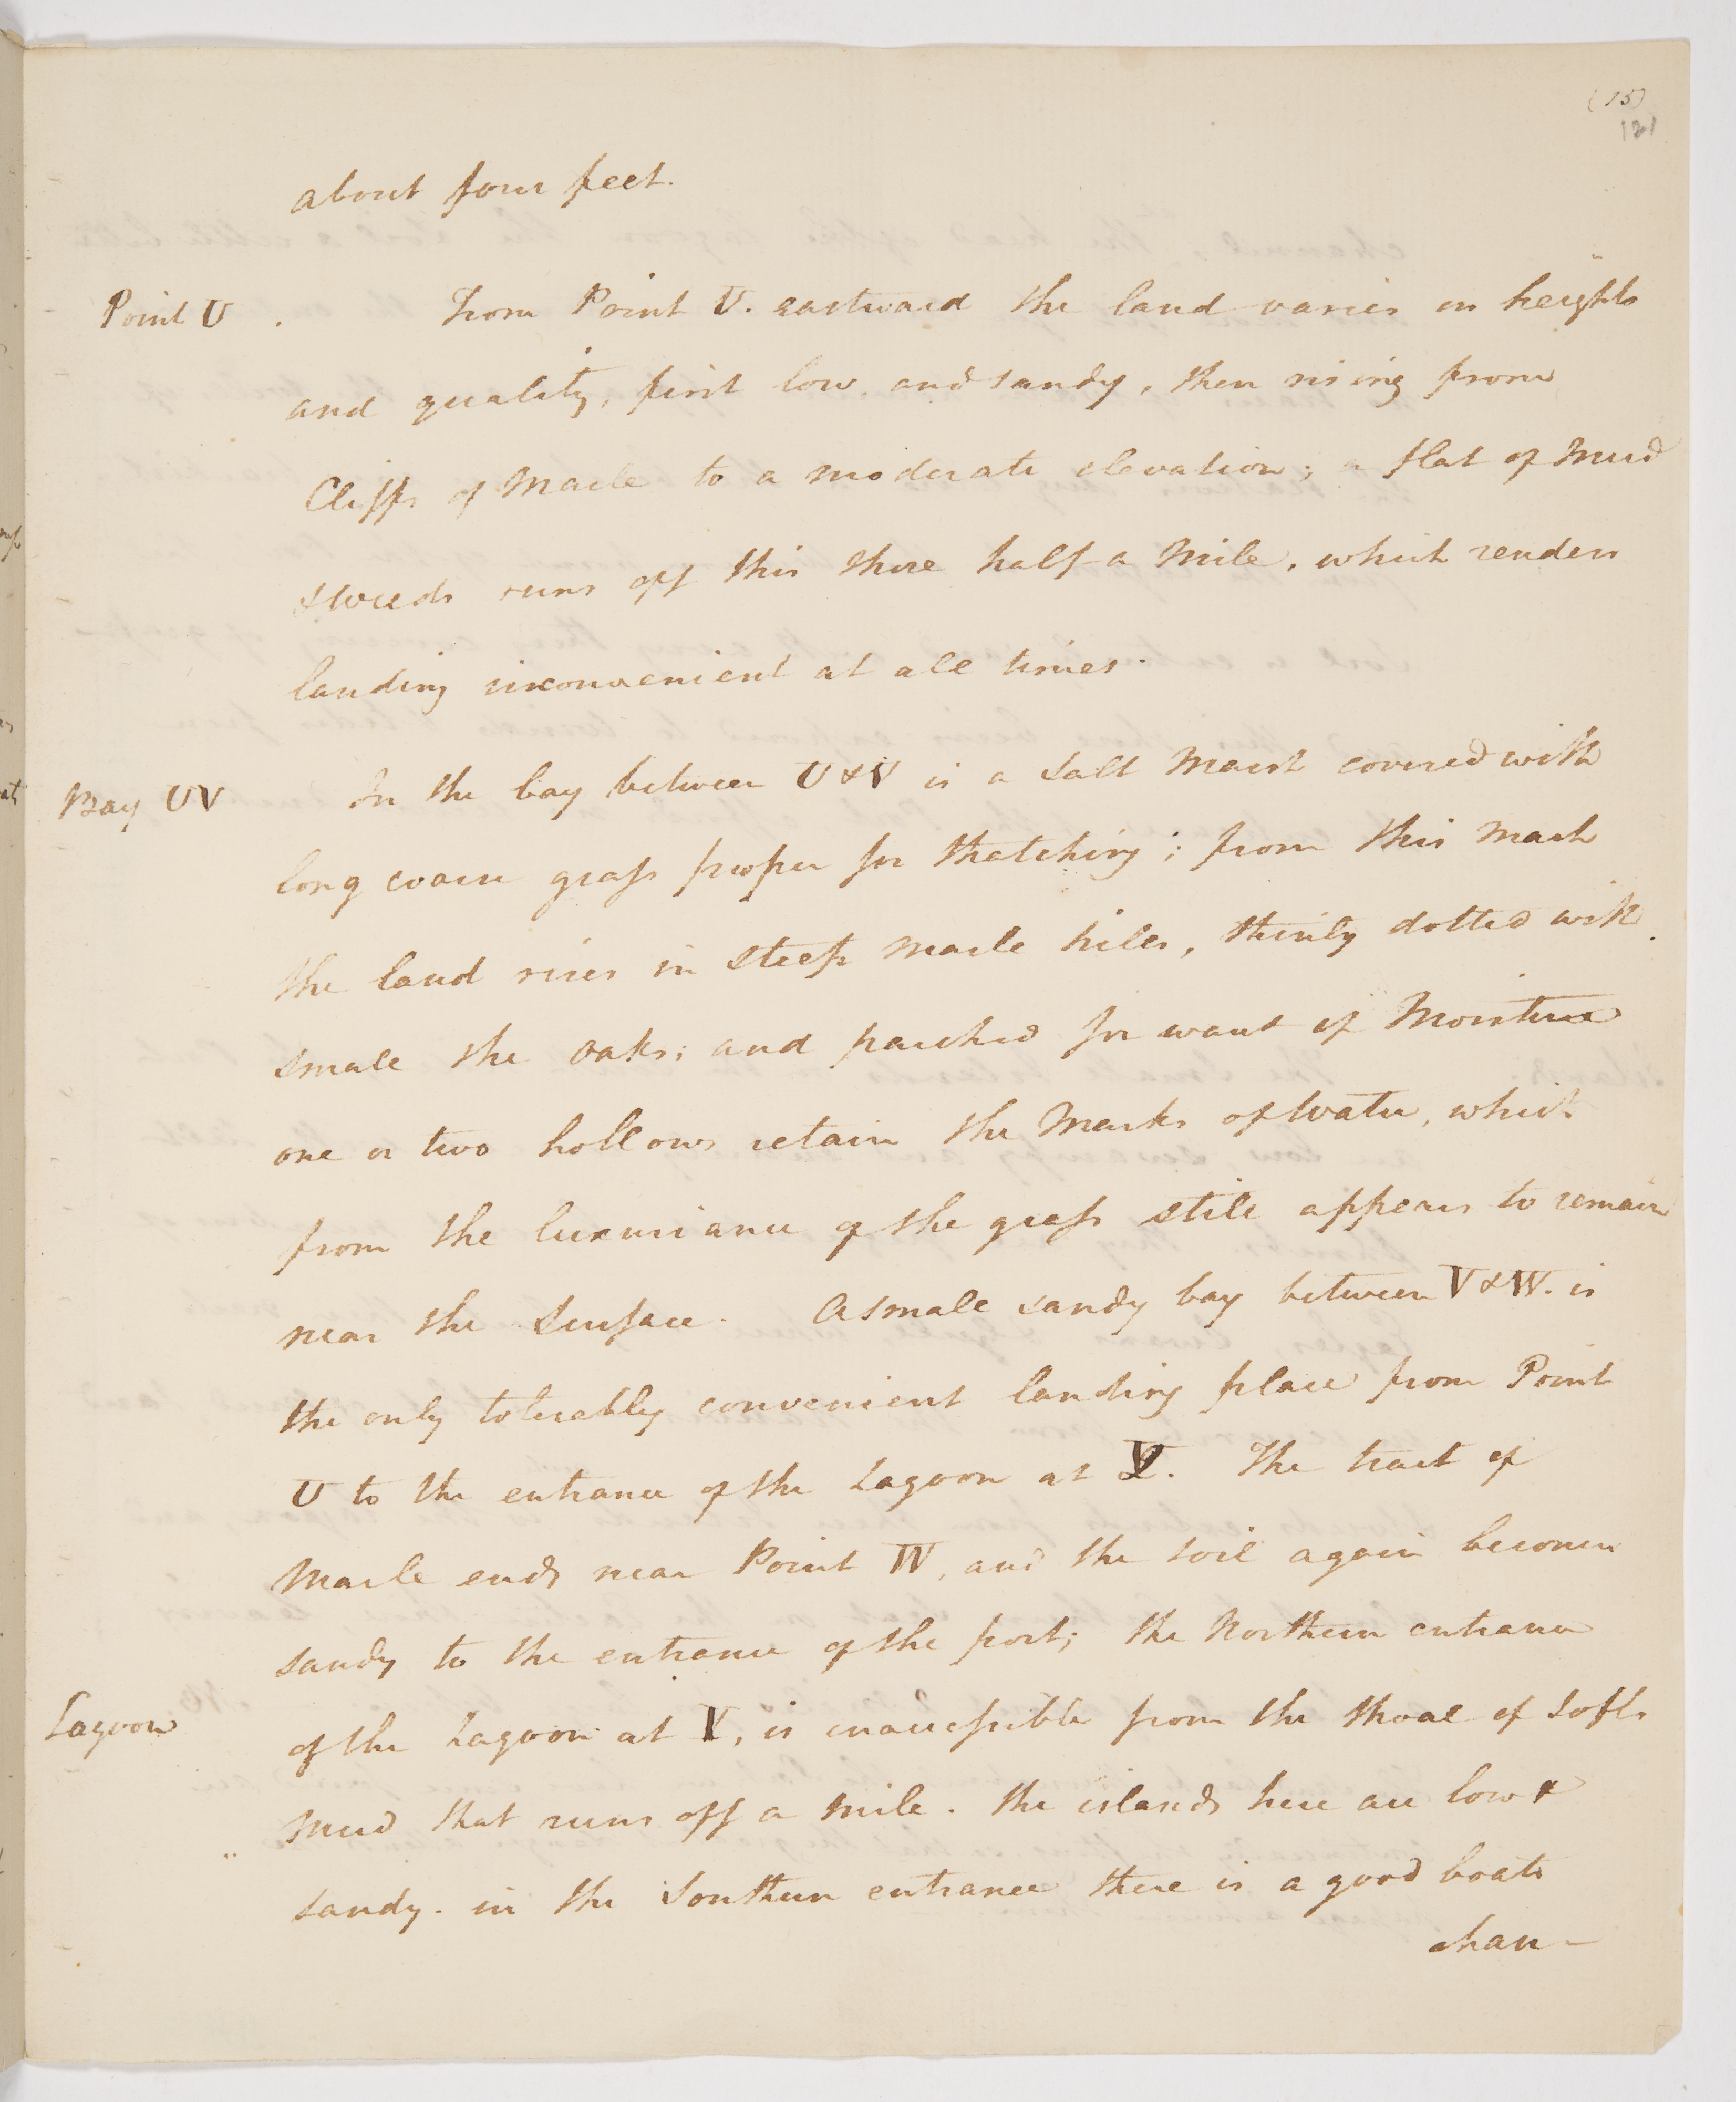 (15)
121
about four feet.
Point U . From Point U. eastward the land varies in heights
and quality, first low and sandy, then rising from
Cliffs of Marle to a moderate elevation; a flat of Mud
& weeds runs off this shore half a Mile, which renders
landing inconvenient at all times.
Bay UV In the bay between U & V is a Salt Marsh covered with
long coarse grass proper for thatching; from this Marsh
the land rises in steep Marle hills, thinly dotted with
small she oaks; and parched for want of Moisture
one or two hollows retain the Marks of Water, which
from the luxuriance of the grass still appears to remain
near the Surface. A small sandy bay between V & W. is
the only tolerably convenient landing place from Point
U to the entrance of the Lagoon at X. The tract of
Marle ends near Point W, and the soil again becomes
sandy to the entrance of the port; the Northern entrance
Lagoon of the Lagoon at X, is inaccessible from the shoal of soft
Mud that runs off a Mile. the islands here are low &
sandy. in the Southern entrance there is a good boats
chan-